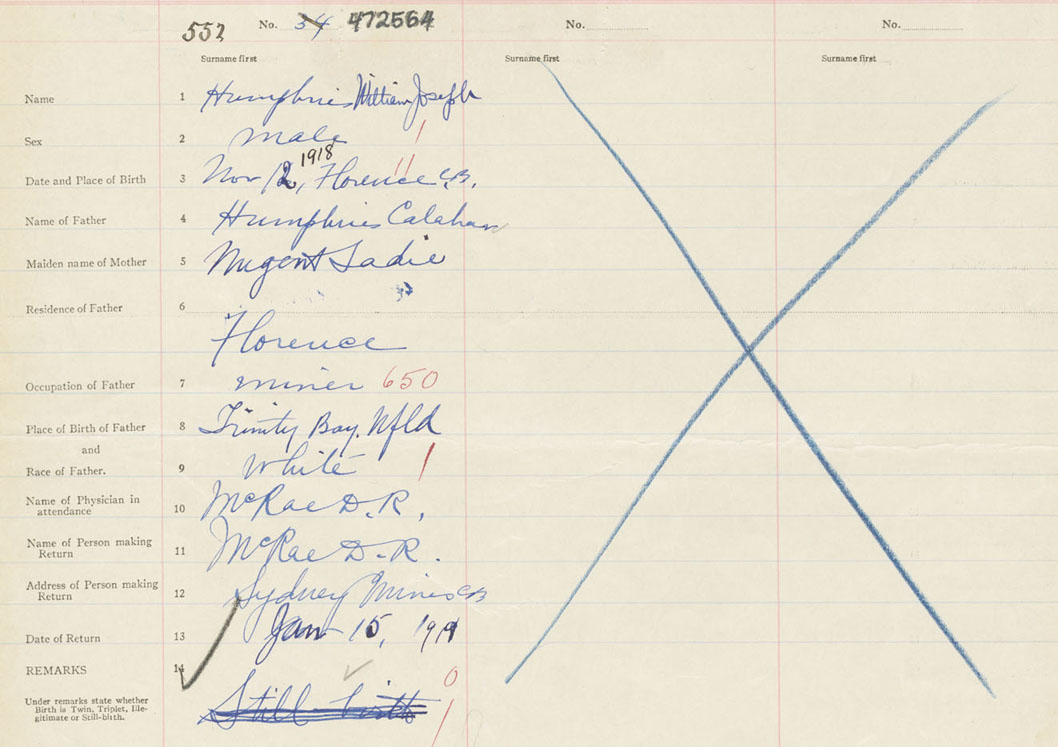 552 No. 34 472564 No. No.
Surname first Surname first Surname first
Name 1 Humphries William Joseph
Sex 2 male 1
1918 11
Date and Place of Birth 3 Nov 12, Florence C.B.
Name of Father 4 Humphries Calahan
Maiden name of Mother 5 Nugent Sadie
Residence of Father 6
Florence
Occupation of Father 7 miner 650
Place of Birth of Father 8 Trinity Bay, Nfld
and
Race of Father. 9 White 1
Name of Physician in attendance 10 McRae D.R.
Name of Person making Return 11 McRae D.R.
Address of Person making Return 12 Sydney Mines CB
Date of Return 13 Jan 15, 1919
REMARKS 14 0
Under remarks state whether
Birth is Twin, Triplet, Ille-
gitimate or Still-bith. Still-birth 1